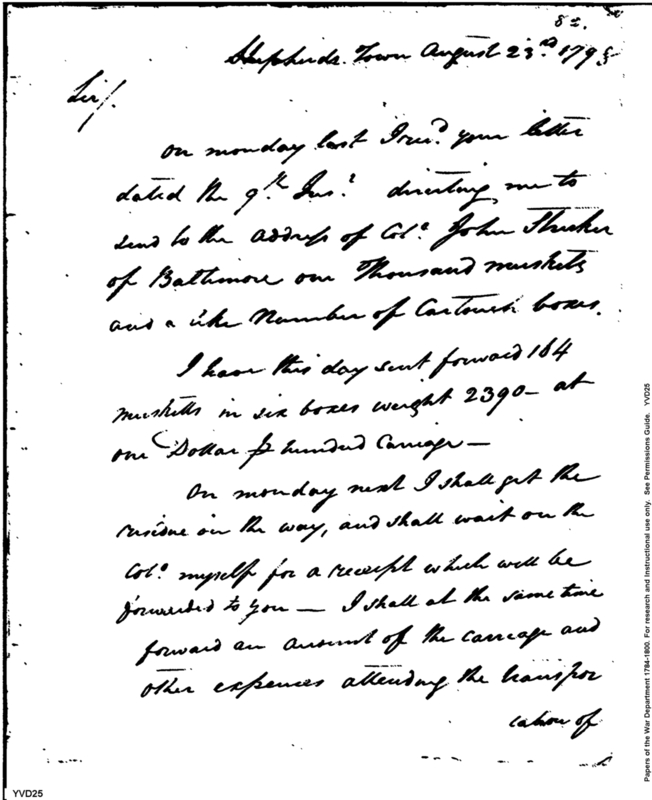 Shepherds Town August 23rd. 179
Sir/.
on monday last I recd. your letter
dated the 9th. Inst. directing me to
send to the address of Colo. John Stricker
of Baltimore one Thousand musketts
and a like Number of Cartouch boxes.
I have this day sent forward 164
musketts in six boxes weight 2390 — at
one Dollar hundred Carriage —
On monday next I shall get the
residue on the way, and shall wait on the
Colo. myself for a receipt which will be
forwarded to you — I shall at the same time
forward an amount of the carriage and
other expences attending the transpor
tation of
YVD25
Papers of the War Department 1784-1800. For research and instructional use only. See Permissions Guide. YVD25